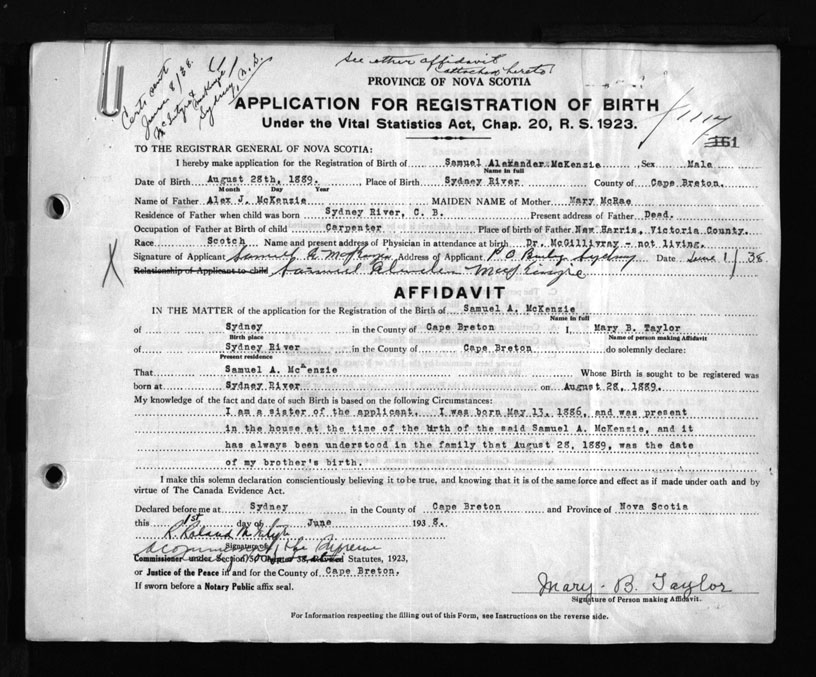 See other affidavit
attached hereto
Certs sent
June 8/38.
McIntyre &
Sydney, N. S.
PROVINCE OF NOVA SCOTIA
APPLICATION FOR REGISTRATION OF BIRTH
Under the Vital Statistics Act, Chap. 20, R. S. 1923.
161
TO THE REGISTRAR GENERAL OF NOVA SCOTIA:
I hereby make application for the Registration of Birth of Samuel Alexander McKenzie Sex Male
Name in full
Date of Birth August 28th, 1889. Place of Birth Sydney River County of Cape Breton.
Month Day Year
Name of Father Alex J. McKenzie MAIDEN NAME of Mother Mary McRae
Residence of Father when child was born Sydney River, C. B. Present address of Father Dead.
Occupation of Father at Birth of child Carpenter Place of birth of Father New Harris, Victoria County.
Race Scotch Name and present address of Physician in attendance at birth Dr. McGillivray - not living.
Signature of Applicant Samuel A McKenzie Address of Applicant P O Sydney Date June 1/38
Relationship of Applicant to child Samuel MacKenzie
X
AFFIDAVIT
IN THE MATTER of the application for the Registration of the Birth of Samuel A. McKenzie
Name in full
of Sydney in the County of Cape Breton I, Mary B. Taylor
Birth place Name of person making Affidavit
of Sydney River in the County of Cape Breton do solemnly declare:
Present residence
That Samuel A. McKenzie Whose Birth is sought to be registered was
born at Sydney River on August 28, 1889.
My knowledge of the fact and date of such Birth is based on the following Circumstances:
I am a sister of the applicant. I was born May 13, 1886, and was present
in the house at the time of the birth of the said Samuel A. McKenzie, and it
has always been understood in the family that August 28, 1889, was the date
of my brother's birth.
I make this solemn declaration conscientiously believing it to be true, and knowing that it is of the same force and effect as if made under oath and by
virtue of The Canada Evidence Act.
Declared before me at Sydney in the County of Cape Breton and Province of Nova Scotia
this 1st day of June 1938.
Signature
A Commissioner of the Supreme
Commissioner under Section 50 Chapter 38, Revised Statutes, 1923,
or Justice of the Peace in and for the County of Cape Breton.
If sworn before a Notary Public affix seal.
Mary. B. Taylor
Signature of Person making Affidavit.
For Information respecting the filling out of this Form, see Instructions on the reverse side.